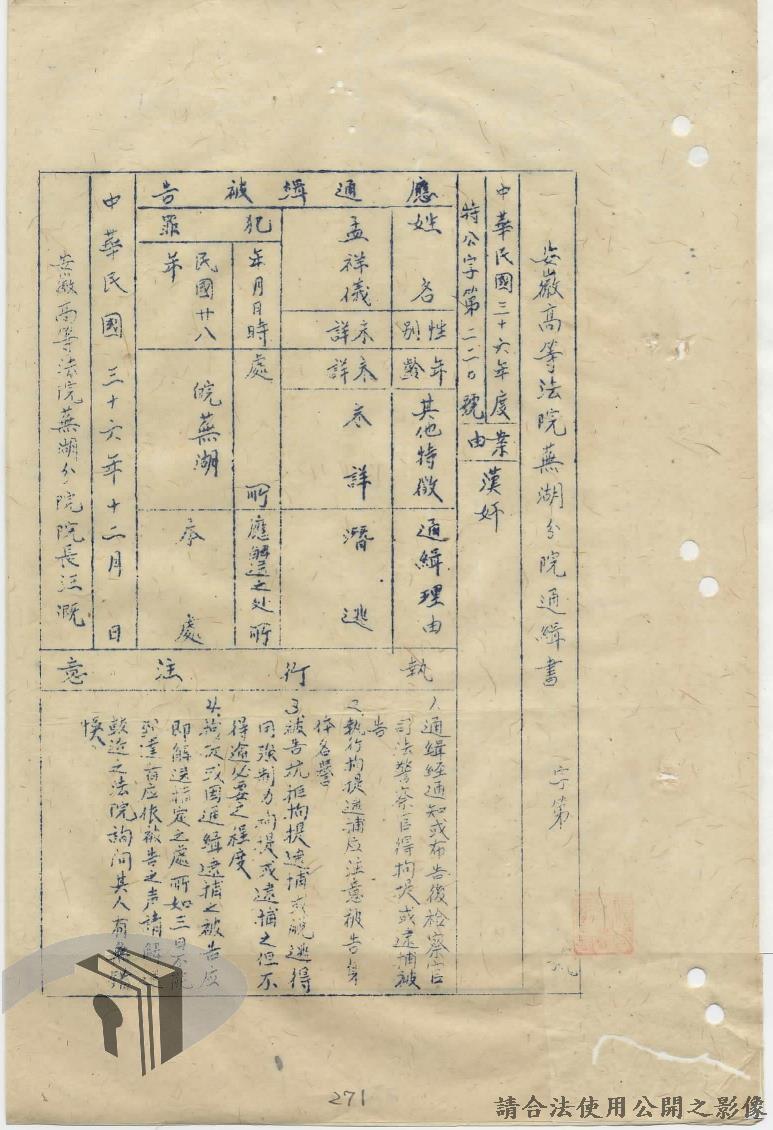 安徽高等法院蕪湖分院通緝書
字第
號
中華民國三十六年度
特公字第二二〇號
案由
漢奸
應通緝被告
姓名
性別
年齡
其他特徵
通緝理由
孟祥儀
未詳
未詳
未詳
潛逃
犯罪
年月日時
處所
應解送之处所
民國廿八年
皖蕪湖
本處
執行注意
1、通緝經通知或布告後检察官
司法警察官得拘提或逮捕被
告
2、執行拘提逮捕应注意被告身
体名譽
3、被告抗拒拘提逮捕或脫逃得
用強制力拘提或逮捕之但不
得逾必要之程度
4、拘提或因通緝逮捕之被告应
即解送指定之處所如三日不能
到達者应依被告之声請解送
較近之法院詢问其人有無錯
悞
中華民國三十六年十二月 日
安徽高等法院蕪湖分院院長汪溉
271
請合法使用公開之影像